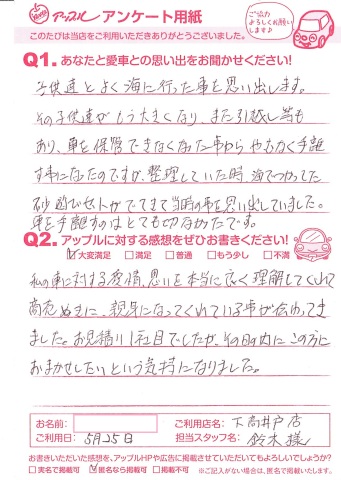 アップル アンケート用紙
ご協力
よろしくお願い
します♪
このたびは当店をご利用いただきありがとうございました。
Q1. あなたと愛車との思い出をお聞かせください!
子供達とよく海に行った事を思い出します。
その子供達がもう大きくなり、また引越し等も
あり、車を保管できなくなった事からやむなく手離
す事になったのですが、整理していた時、海でつかってた
砂遊びセットがでてきて当時の事を思い出していました。
車を手離すのはとても切なかったです。
Q2. アップルに対する感想をぜひお書きください!
☑大変満足 □満足 □普通 □もう少し □不満
私の車に対する愛情、思いを本当に良く理解してくれて
商売ぬきに、親身になってくれている事が伝わってき
ました。お見積り1社目でしたが、その日の内にこの方に
おまかせしたいという気持になりました。
お名前: ご利用店名: 下高井戸店
ご利用日: 5月25日 担当スタッフ名: 鈴木様
お書きいただいた感想を、アップルHPや広告に掲載させていただいてもよろしいでしょうか?
□実名で掲載可 ☑匿名なら掲載可 □掲載不可 ※ご記入がない場合は、匿名で掲載いたします。